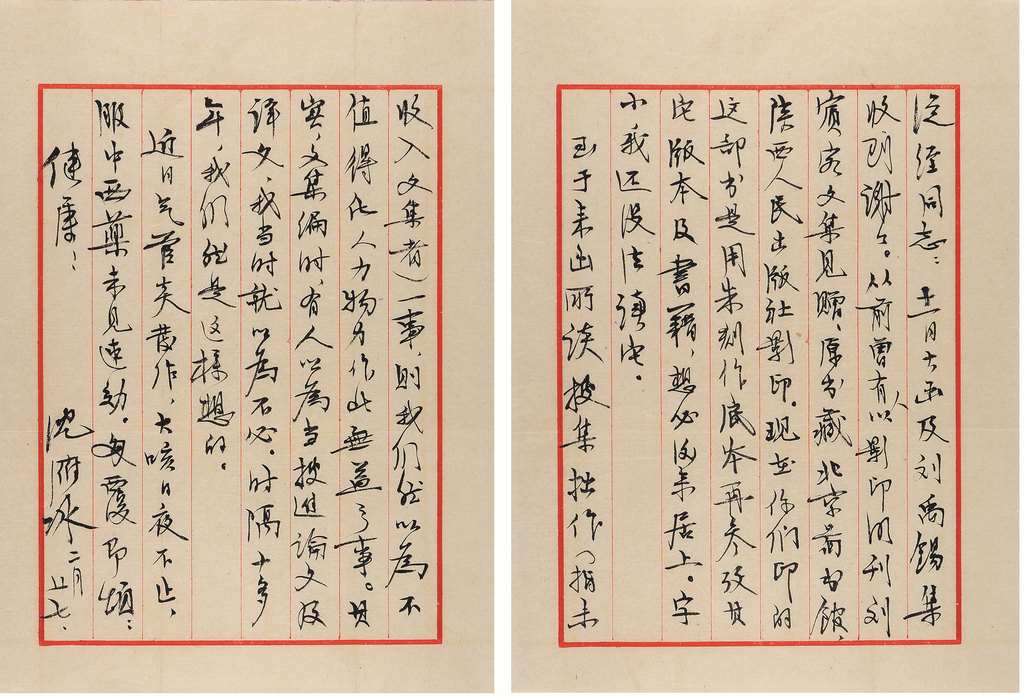 经同志：十一日大函及刘禹锡集
收到谢谢。从前曾有人以影印明刊刘
宾客文集见赠，原书藏北京图书馆，
陕西人民出版社影印。现在你们印的
这部书是用朱刻作底本再参考其
它版本及書籍，想必后来居上。字
小，我还没法读它。
至于来函所谈搜集拙作（指未
收入文集者）一事，则我仍然以为不
值得化人力物力作此無益之事。其
实，文集编时，有人以为当搜进論文及
译文，我当时就以为不必。时隔十多
年，我仍然是这样想的。
近日气管炎發作，大咳日夜不止，
服中西藥未見速効。匆覆即頌：
健康！
沈雁冰 二月